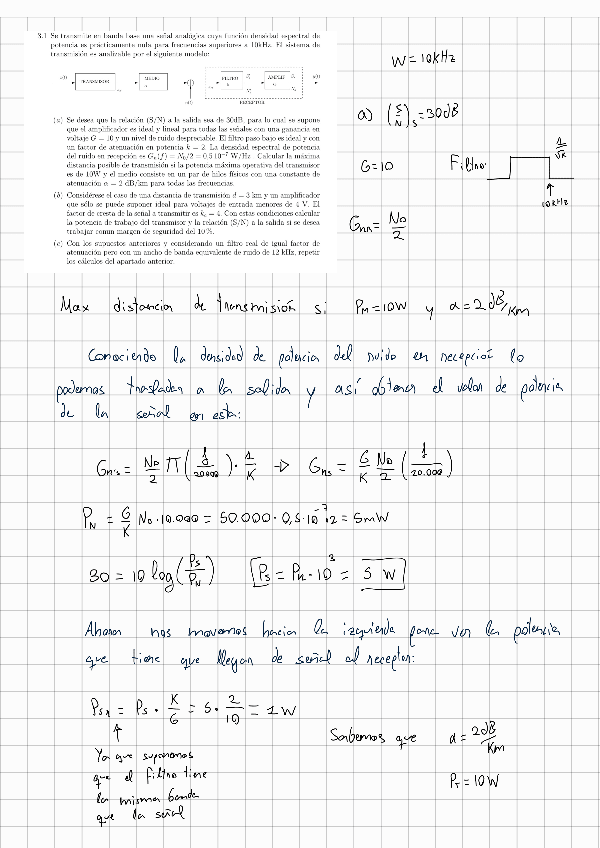 3.1 Se transmite en banda base una señal analógica cuya función densidad espectral de
potencia es prácticamente nula para frecuencias superiores a 10kHz. El sistema de
transmisión es analizable por el siguiente modelo:
TRANSMISOR
MEDIO
FILTRO
AMPLIF.
RECEPTOR
(a) Se desea que la relación (S/N) a la salida sea de 30dB, para lo cual se supone
que el amplificador es ideal y lineal para todas las señales con una ganancia en
voltaje G = 10 y un nivel de ruido despreciable. El filtro paso bajo es ideal y con
un factor de atenuación en potencia k = 2. La densidad espectral de potencia
del ruido en recepción es Gn(f) = N0/2 = 0.5 10^-7 W/Hz. Calcular la máxima
distancia posible de transmisión si la potencia máxima operativa del transmisor
es de 10W y el medio consiste en un par de hilos físicos con una constante de
atenuación α = 2 dB/km para todas las frecuencias.
(b) Considérese el caso de una distancia de transmisión d = 3 km y un amplificador
que sólo se puede suponer ideal para voltajes de entrada menores de 4 V. El
factor de cresta de la señal a transmitir es kc = 4. Con estas condiciones calcular
la potencia de trabajo del transmisor y la relación (S/N) a la salida si se desea
trabajar con un margen de seguridad del 10 %.
(c) Con los supuestos anteriores y considerando un filtro real de igual factor de
atenuación pero con un ancho de banda equivalente de ruido de 12 kHz, repetir
los cálculos del apartado anterior.
W = 10kHz
a) (S/N)s = 30dB
G = 10 Filtro: 1/√k
10kHz
Gnn = N0/2
Max distancia de transmisión si PM = 10W y α = 2dB/Km
Conociendo la densidad de potencia del ruido en recepción lo
podemos trasladar a la salida y así obtener el valor de potencia
de la señal en esta:
Gn's = N0/2 Π(f/20000) · 1/K -> Gns = G/K N0/2 (f/20.000)
PN = G/K N0 · 10.000 = 50.000 · 0,5 · 10^-7 · 2 = 5mW
30 = 10 log(Ps/PN) Ps = PN · 10^3 = 5 W
Ahora nos movemos hacia la izquierda para ver la potencia
que tiene que llegar de señal al receptor:
Psr = Ps · K/G = 5 · 2/10 = 1W
Sabemos que α = 2dB/Km
Ya que suponemos
que el filtro tiene
la misma banda
que la señal
PT = 10W